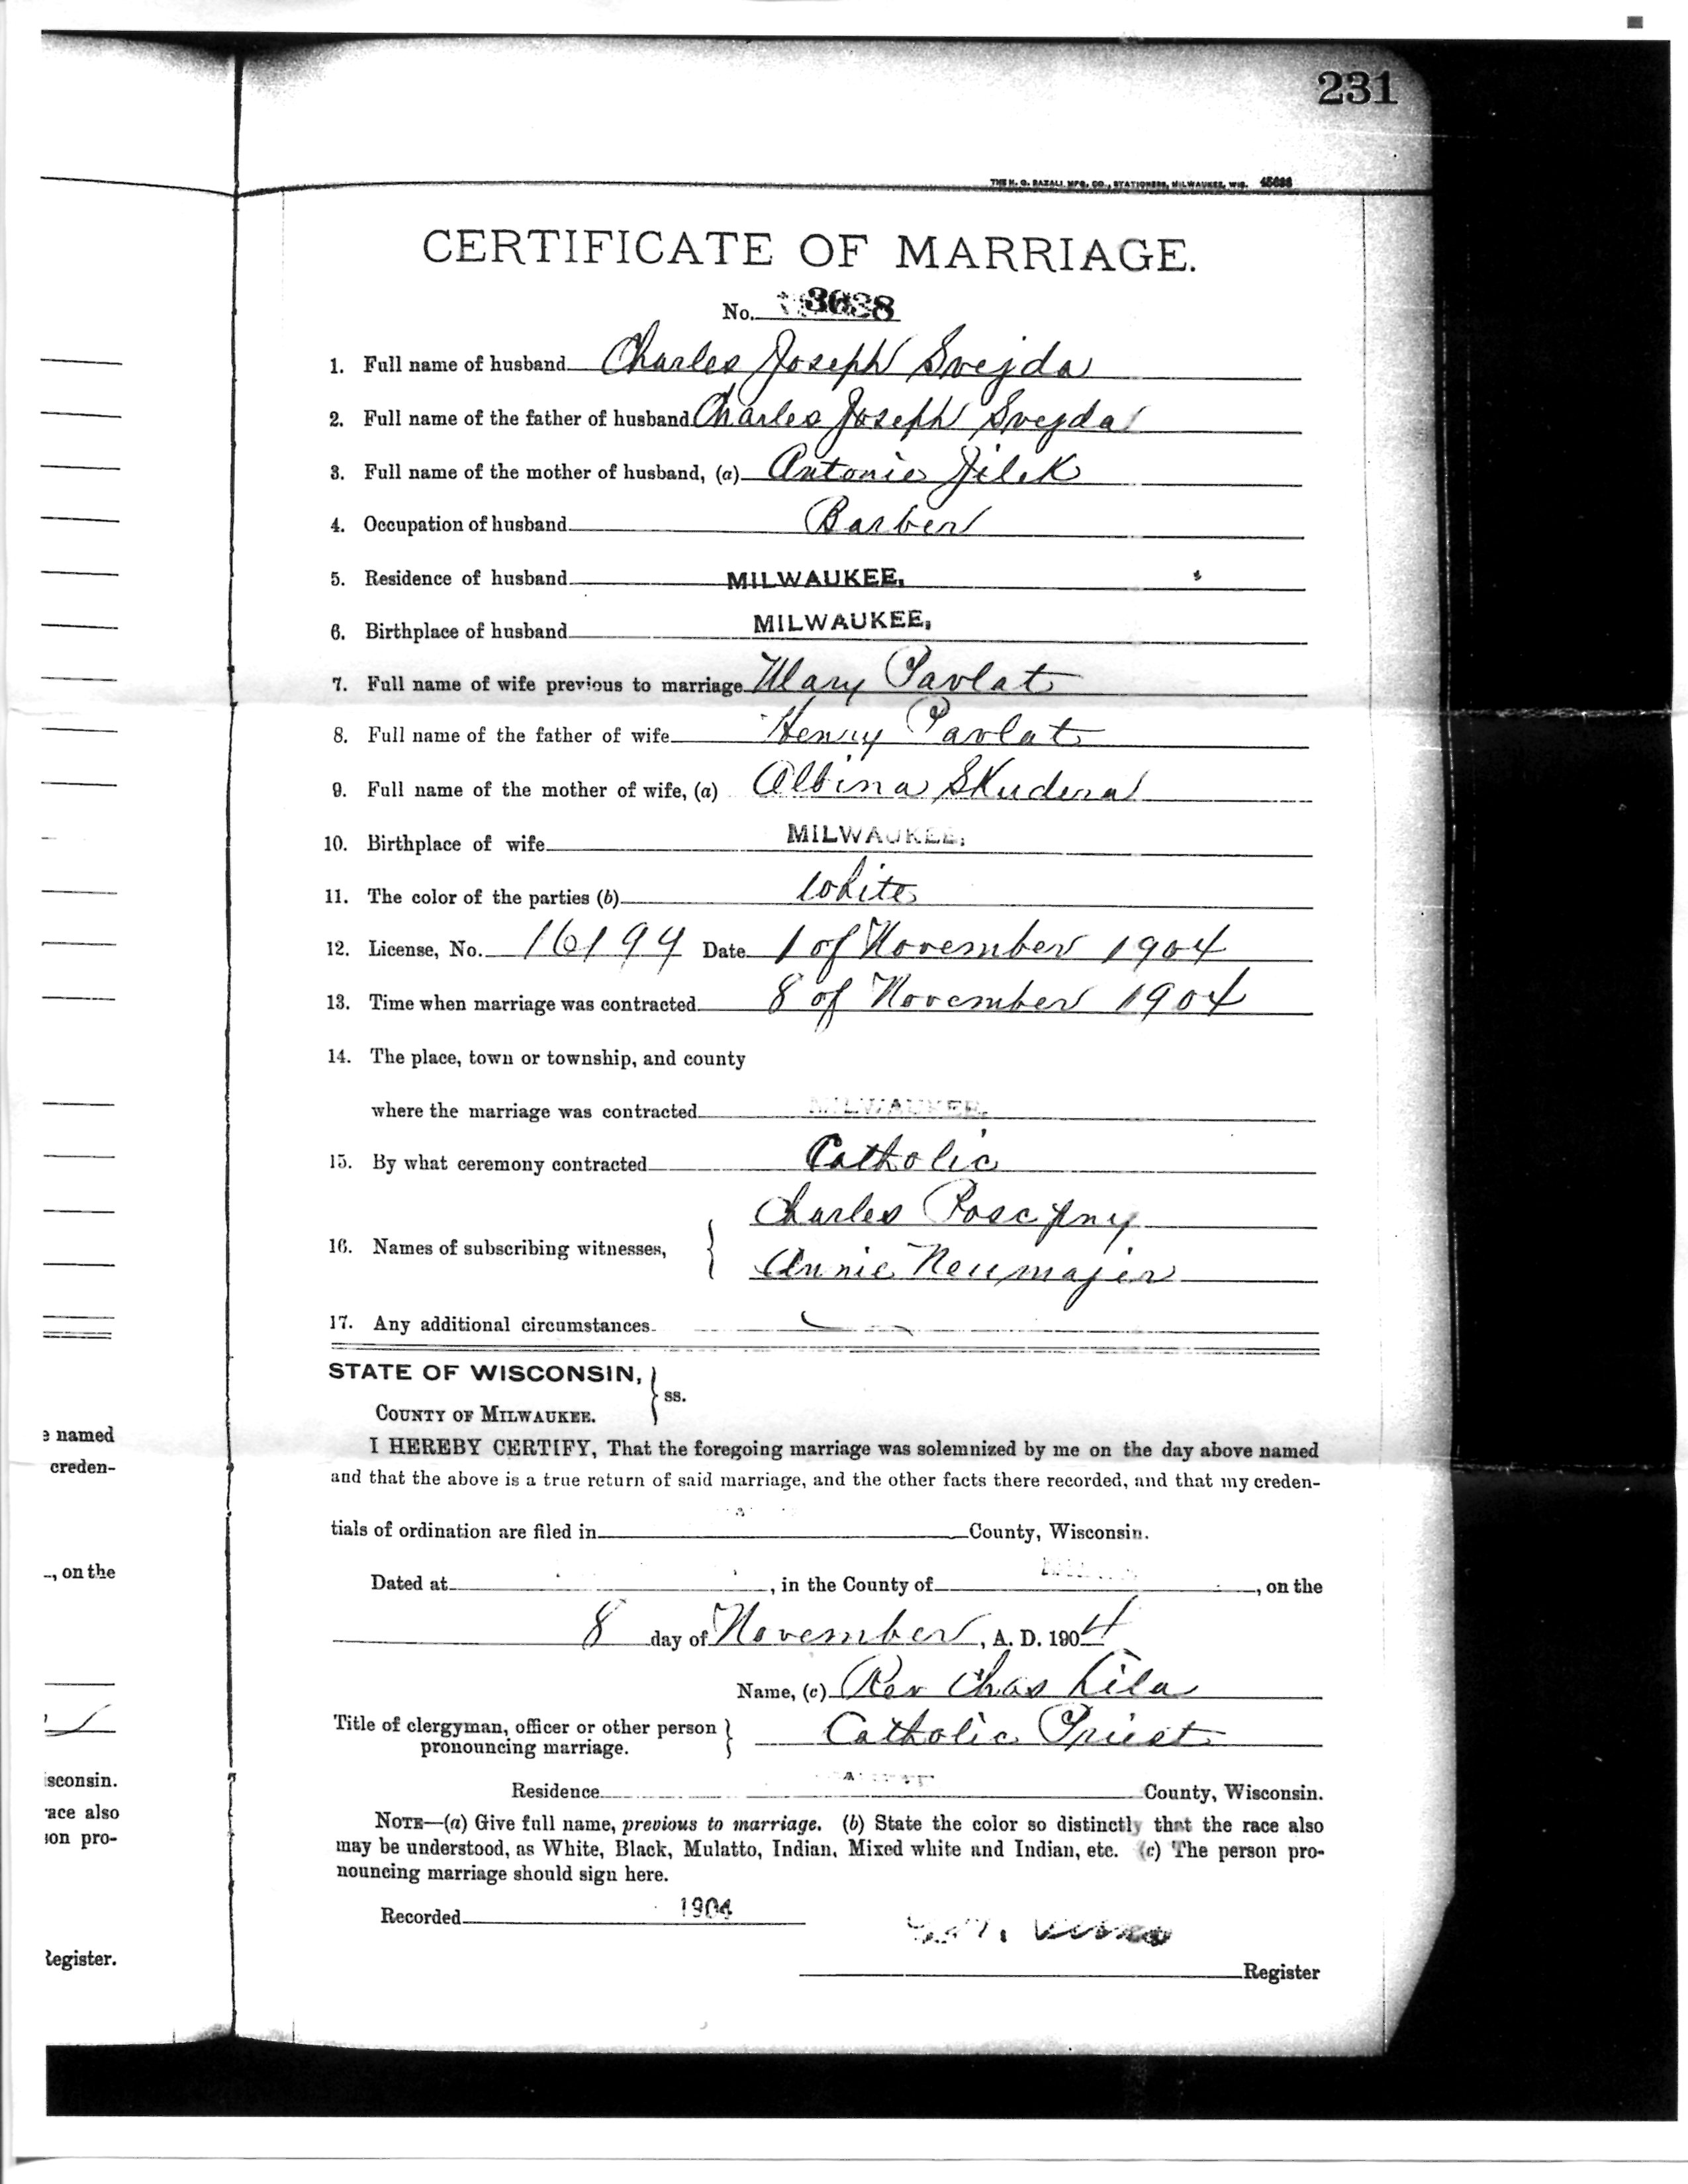 231
THE H. G. RAZALL MFG. CO., STATIONERS, MILWAUKEE, WIS. 45686
CERTIFICATE OF MARRIAGE.
No. 3638
1. Full name of husband Charles Joseph Svejda
2. Full name of the father of husband Charles Joseph Svejda
3. Full name of the mother of husband, (a) Antonie Jilek
4. Occupation of husband Barber
5. Residence of husband MILWAUKEE,
6. Birthplace of husband MILWAUKEE,
7. Full name of wife previous to marriage Mary Pavlat
8. Full name of the father of wife Henry Pavlat
9. Full name of the mother of wife, (a) Albina Skudera
10. Birthplace of wife MILWAUKEE,
11. The color of the parties (b) White
12. License, No. 16194 Date 1 of November 1904
13. Time when marriage was contracted 8 of November 1904
14. The place, town or township, and county
where the marriage was contracted MILWAUKEE,
15. By what ceremony contracted Catholic
Charles Pospisny
16. Names of subscribing witnesses,
Annie Neumajer
17. Any additional circumstances
STATE OF WISCONSIN,
ss.
COUNTY OF MILWAUKEE.
I HEREBY CERTIFY, That the foregoing marriage was solemnized by me on the day above named
and that the above is a true return of said marriage, and the other facts there recorded, and that my creden-
tials of ordination are filed in County, Wisconsin.
Dated at , in the County of , on the
8 day of November, A. D. 1904
Name, (c) Rev Chas
Title of clergyman, officer or other person
pronouncing marriage. Catholic Priest
Residence County, Wisconsin.
NOTE—(a) Give full name, previous to marriage. (b) State the color so distinctly that the race also
may be understood, as White, Black, Mulatto, Indian, Mixed white and Indian, etc. (c) The person pro-
nouncing marriage should sign here.
Recorded 1904
Register
e named
creden-
, on the
sconsin.
race also
son pro-
Register.